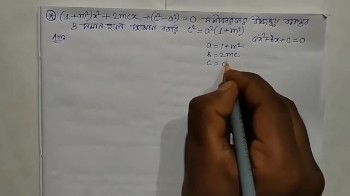 (1+m²)x² + 2mcx + (c²-a²) = 0 সমীকরণের বীজদ্বয় বাস্তব
ও সমান হলে প্রমাণ করি c² = a²(1+m²)
Ans
ax²+bx+c=0
a = 1+m²
b = 2mc
c = c